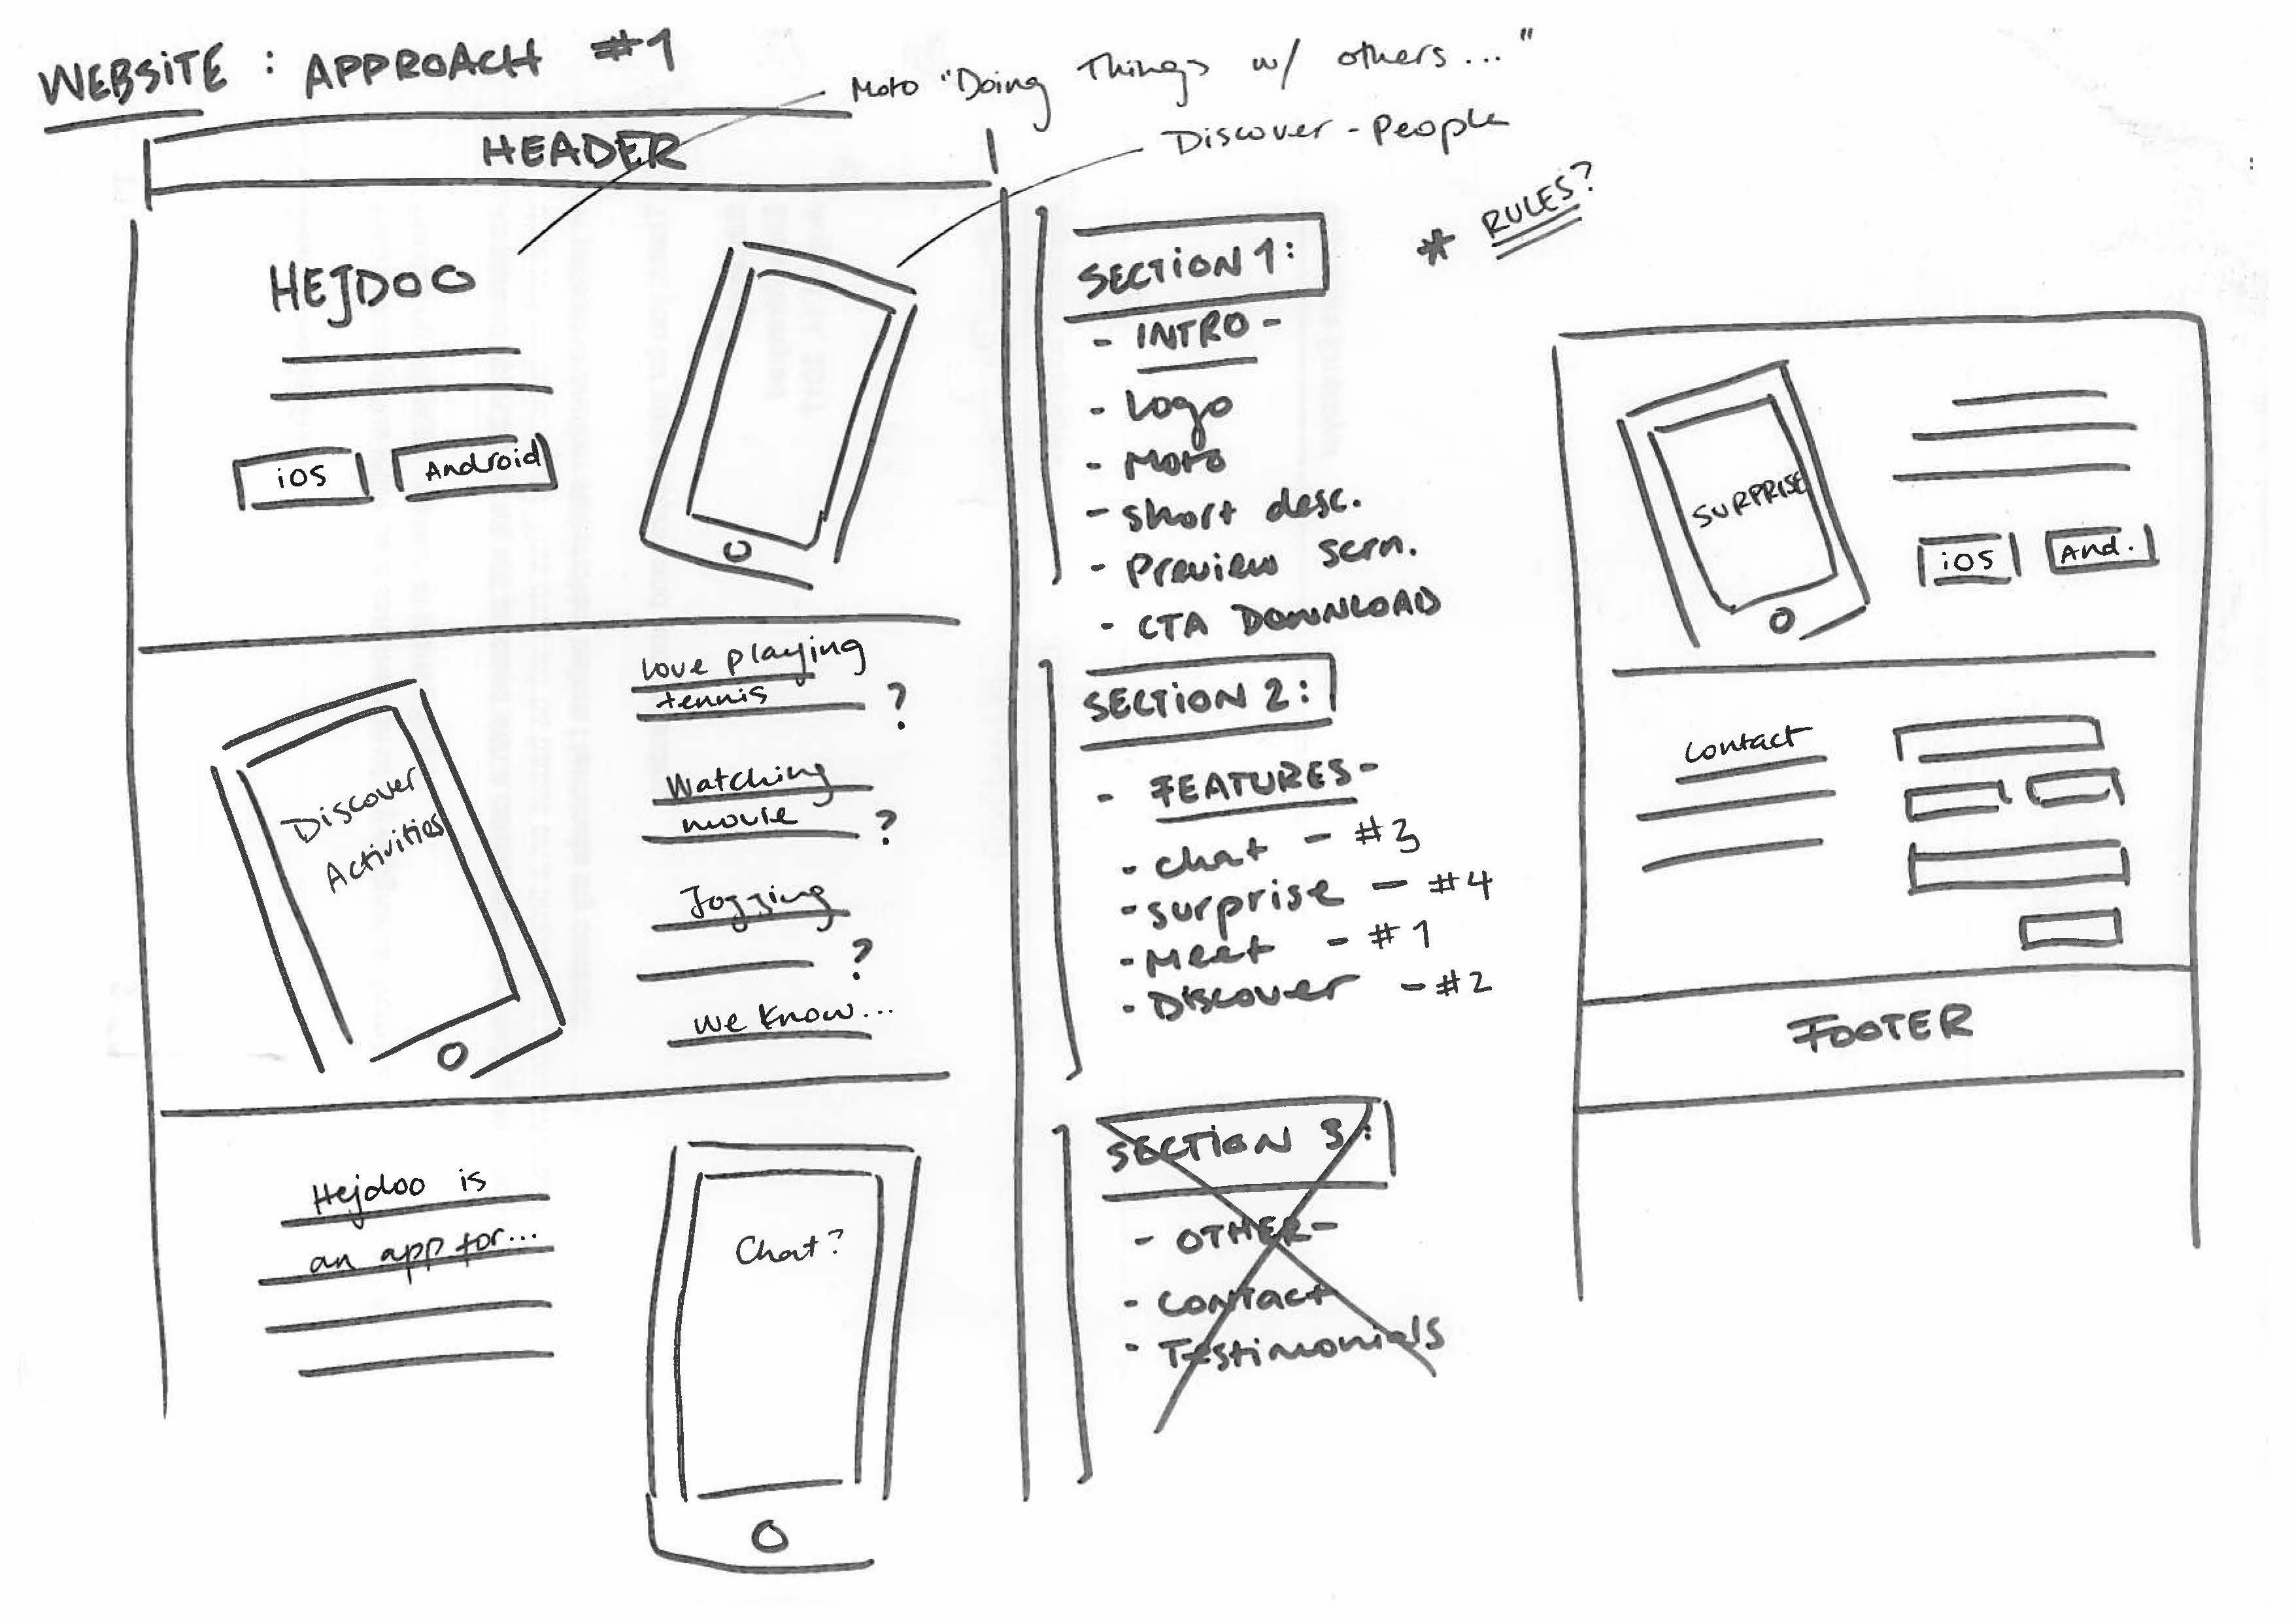 WEBSITE : APPROACH #1
Moto "Doing Things w/ others..."
Discover - People
HEADER
HEJDOO
iOS
Android
love playing
tennis ?
Watching
movie ?
Jogging
?
We know...
Discover
Activities
Hejdoo is
an app for...
Chat?
* RULES?
SECTION 1:
- INTRO -
- Logo
- Moto
- short desc.
- Preview scrn.
- CTA DOWNLOAD
SECTION 2:
- FEATURES -
- chat - #3
- surprise - #4
- Meet - #1
- Discover - #2
SECTION 3:
- OTHER -
- Contact
- Testimonials
SURPRISE
iOS
And.
Contact
FOOTER